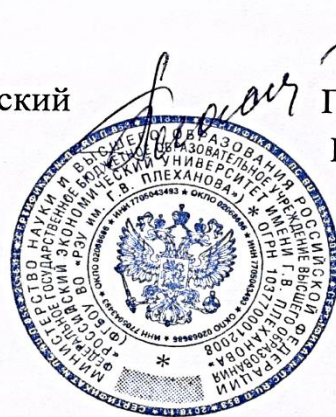 ский
П
МИНИСТЕРСТВО НАУКИ И ВЫСШЕГО ОБРАЗОВАНИЯ РОССИЙСКОЙ ФЕДЕРАЦИИ
ФЕДЕРАЛЬНОЕ ГОСУДАРСТВЕННОЕ БЮДЖЕТНОЕ ОБРАЗОВАТЕЛЬНОЕ УЧРЕЖДЕНИЕ ВЫСШЕГО ОБРАЗОВАНИЯ
«РОССИЙСКИЙ ЭКОНОМИЧЕСКИЙ УНИВЕРСИТЕТ ИМЕНИ Г.В. ПЛЕХАНОВА»
(ФГБОУ ВО «РЭУ ИМ. Г.В. ПЛЕХАНОВА») * ОГРН 1037700012008
* ИНН 7705043493 * ОКПО 02068686 * ИНН 7705043493 * ОКПО 02068686